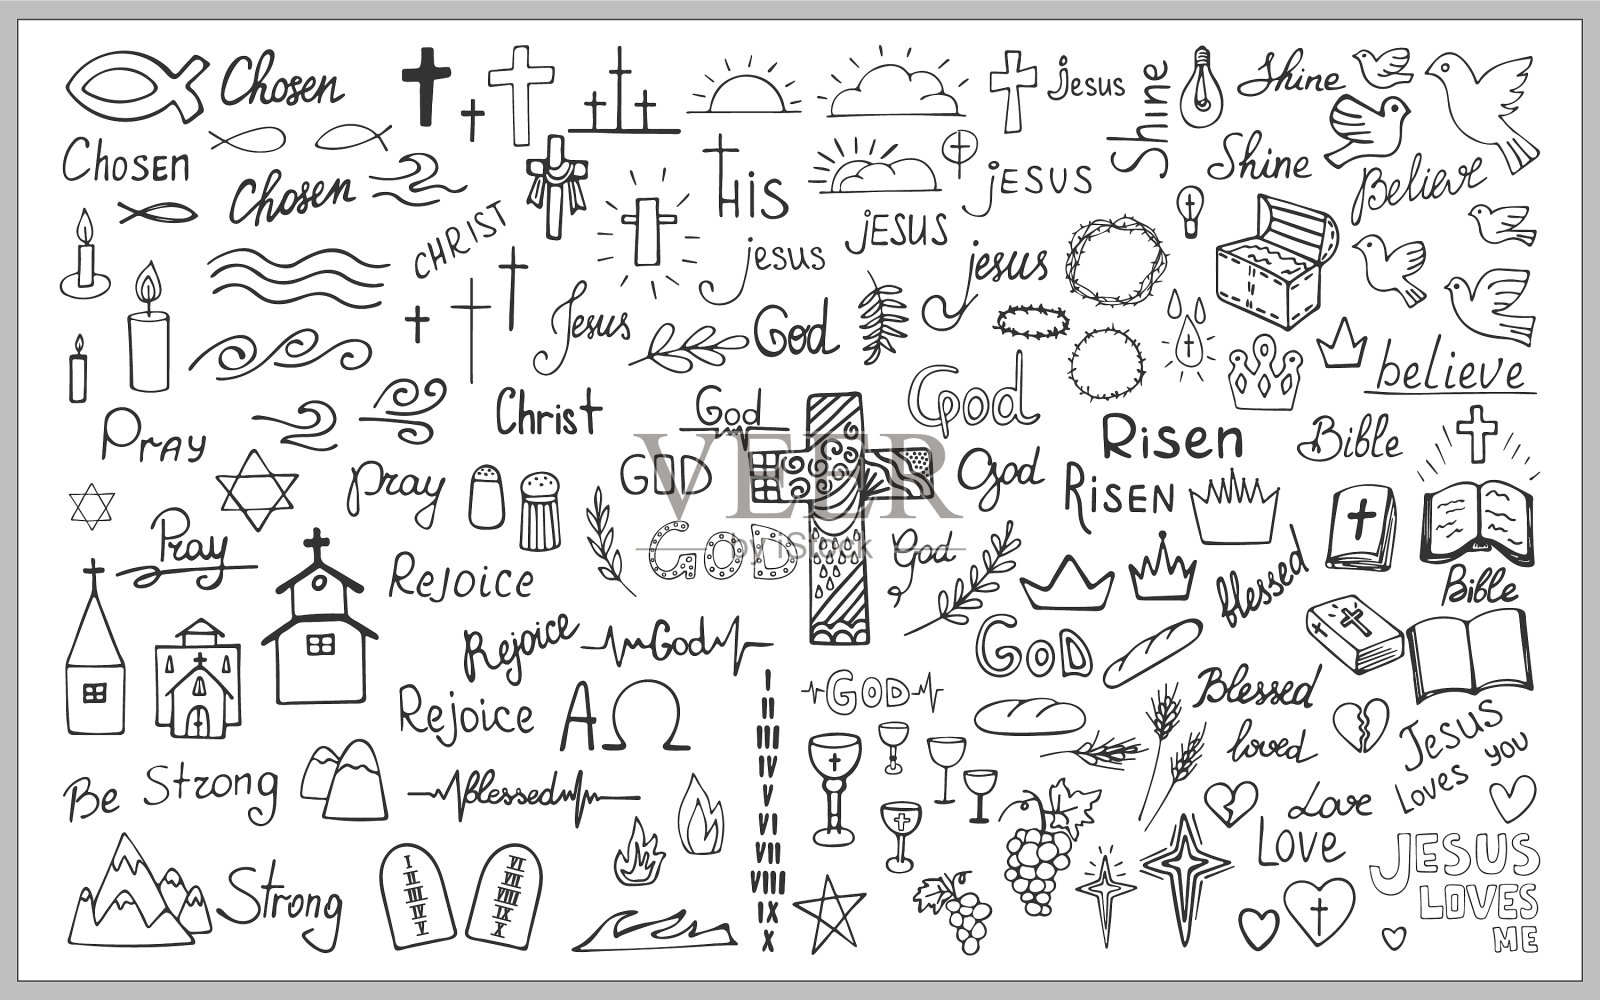 Chosen
Chosen
Chosen
CHRIST
HIS
jesus
Jesus
God
jesus
jESUS
jESUS
jesus
Shine
Shine
Shine
Believe
believe
Pray
Pray
Pray
Christ
God
GOD
GOD
God
God
God
Risen
RiSEN
Bible
Bible
blessed
Rejoice
Rejoice
Rejoice
God
GOD
GOD
AΩ
Blessed
loved
Jesus
Loves you
Be Strong
blessed
Strong
I
II
III
IV
V
VI
VII
VIIII
IX
X
I
II
III
IV
V
VI
VII
VIII
IX
X
Love
Love
JESUS
LOVES
ME
VEER
by iStock